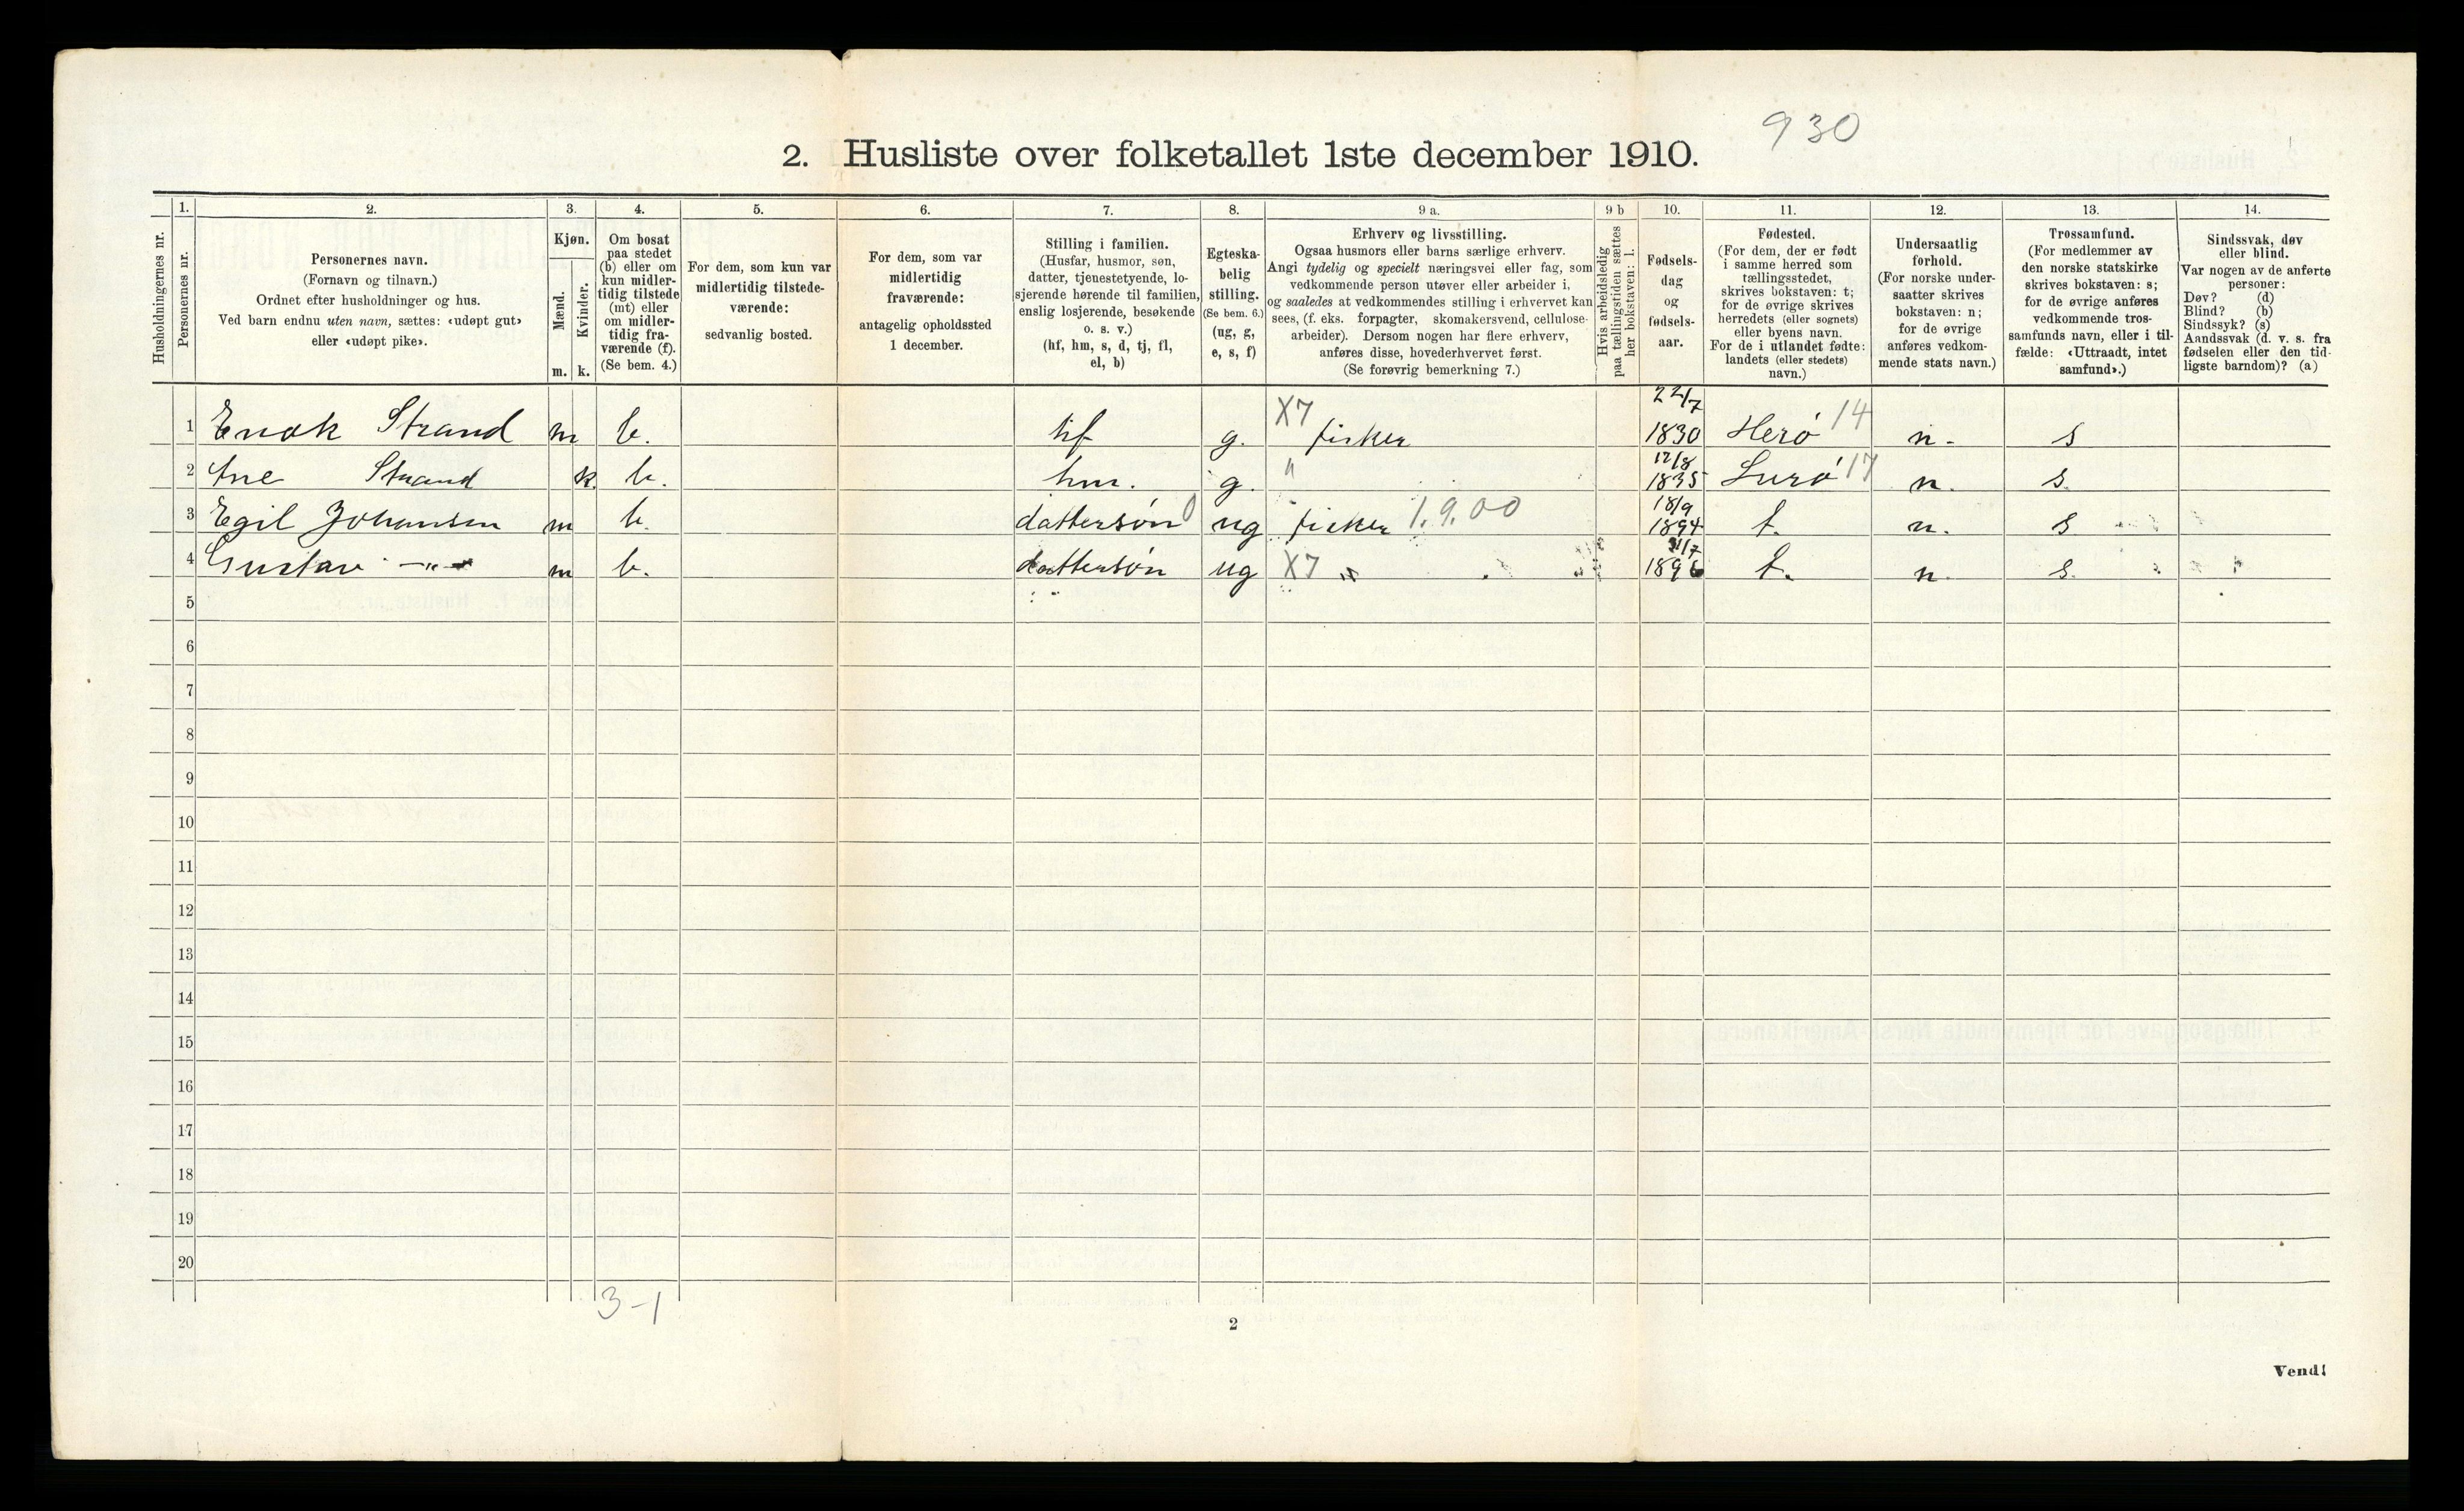 930
2. Husliste over folketallet 1ste december 1910.
Husholdningernes nr.
1.
Personernes nr.
2.
Personernes navn.
(Fornavn og tilnavn.)
Ordnet efter husholdninger og hus.
Ved barn endnu uten navn, sættes: «udøpt gut»
eller «udøpt pike».
3.
Kjøn.
Mænd.
Kvinder.
m. k.
4.
Om bosat
paa stedet
(b) eller om
kun midler-
tidig tilstede
(mt) eller
om midler-
tidig fra-
værende (f).
(Se bem. 4.)
5.
For dem, som kun var
midlertidig tilstede-
værende:
sedvanlig bosted.
6.
For dem, som var
midlertidig
fraværende:
antagelig opholdssted
1 december.
7.
Stilling i familien.
(Husfar, husmor, søn,
datter, tjenestetyende, lo-
sjerende hørende til familien,
enslig losjerende, besøkende
o. s. v.)
(hf, hm, s, d, tj, fl,
el, b)
8.
Egteska-
belig
stilling.
(Se bem. 6.)
(ug, g,
e, s, f)
9 a.
Erhverv og livsstilling.
Ogsaa husmors eller barns særlige erhverv.
Angi tydelig og specielt næringsvei eller fag, som
vedkommende person utøver eller arbeider i,
og saaledes at vedkommendes stilling i erhvervet kan
sees, (f. eks. forpagter, skomakersvend, cellulose-
arbeider). Dersom nogen har flere erhverv,
anføres disse, hovederhvervet først.
(Se forøvrig bemerkning 7.)
9 b
Hvis arbeidsledig
paa tællingstiden sættes
her bokstaven: l.
10.
Fødsels-
dag
og
fødsels-
aar.
11.
Fødested.
(For dem, der er født
i samme herred som
tællingsstedet,
skrives bokstaven: t;
for de øvrige skrives
herredets (eller sognets)
eller byens navn.
For de i utlandet fødte:
landets (eller stedets)
navn.)
12.
Undersaatlig
forhold.
(For norske under-
saatter skrives
bokstaven: n;
for de øvrige
anføres vedkom-
mende stats navn.)
13.
Trossamfund.
(For medlemmer av
den norske statskirke
skrives bokstaven: s;
for de øvrige anføres
vedkommende tros-
samfunds navn, eller i til-
fælde: «Uttraadt, intet
samfund».)
14.
Sindssvak, døv
eller blind.
Var nogen av de anførte
personer:
Døv? (d)
Blind? (b)
Sindssyk? (s)
Aandssvak (d. v. s. fra
fødselen eller den tid-
ligste barndom)? (a)
1 Enok Strand m b. hf g. X7 fisker 22/7 1830 Herø 14 n. s
2 Ane Strand k. b. hm. g. " 12/8 1835 Lurø 17 n. s.
3 Egil Johansen m b. dattersøn 0 ug fisker 1.9.00 18/9 1894 t. n. s
4 Gustav -"- m b. dattersøn ug X7 " /7 1896 t. n. s.
5
6
7
8
9
10
11
12
13
14
15
16
17
18
19
20
3-1
2
Vend!